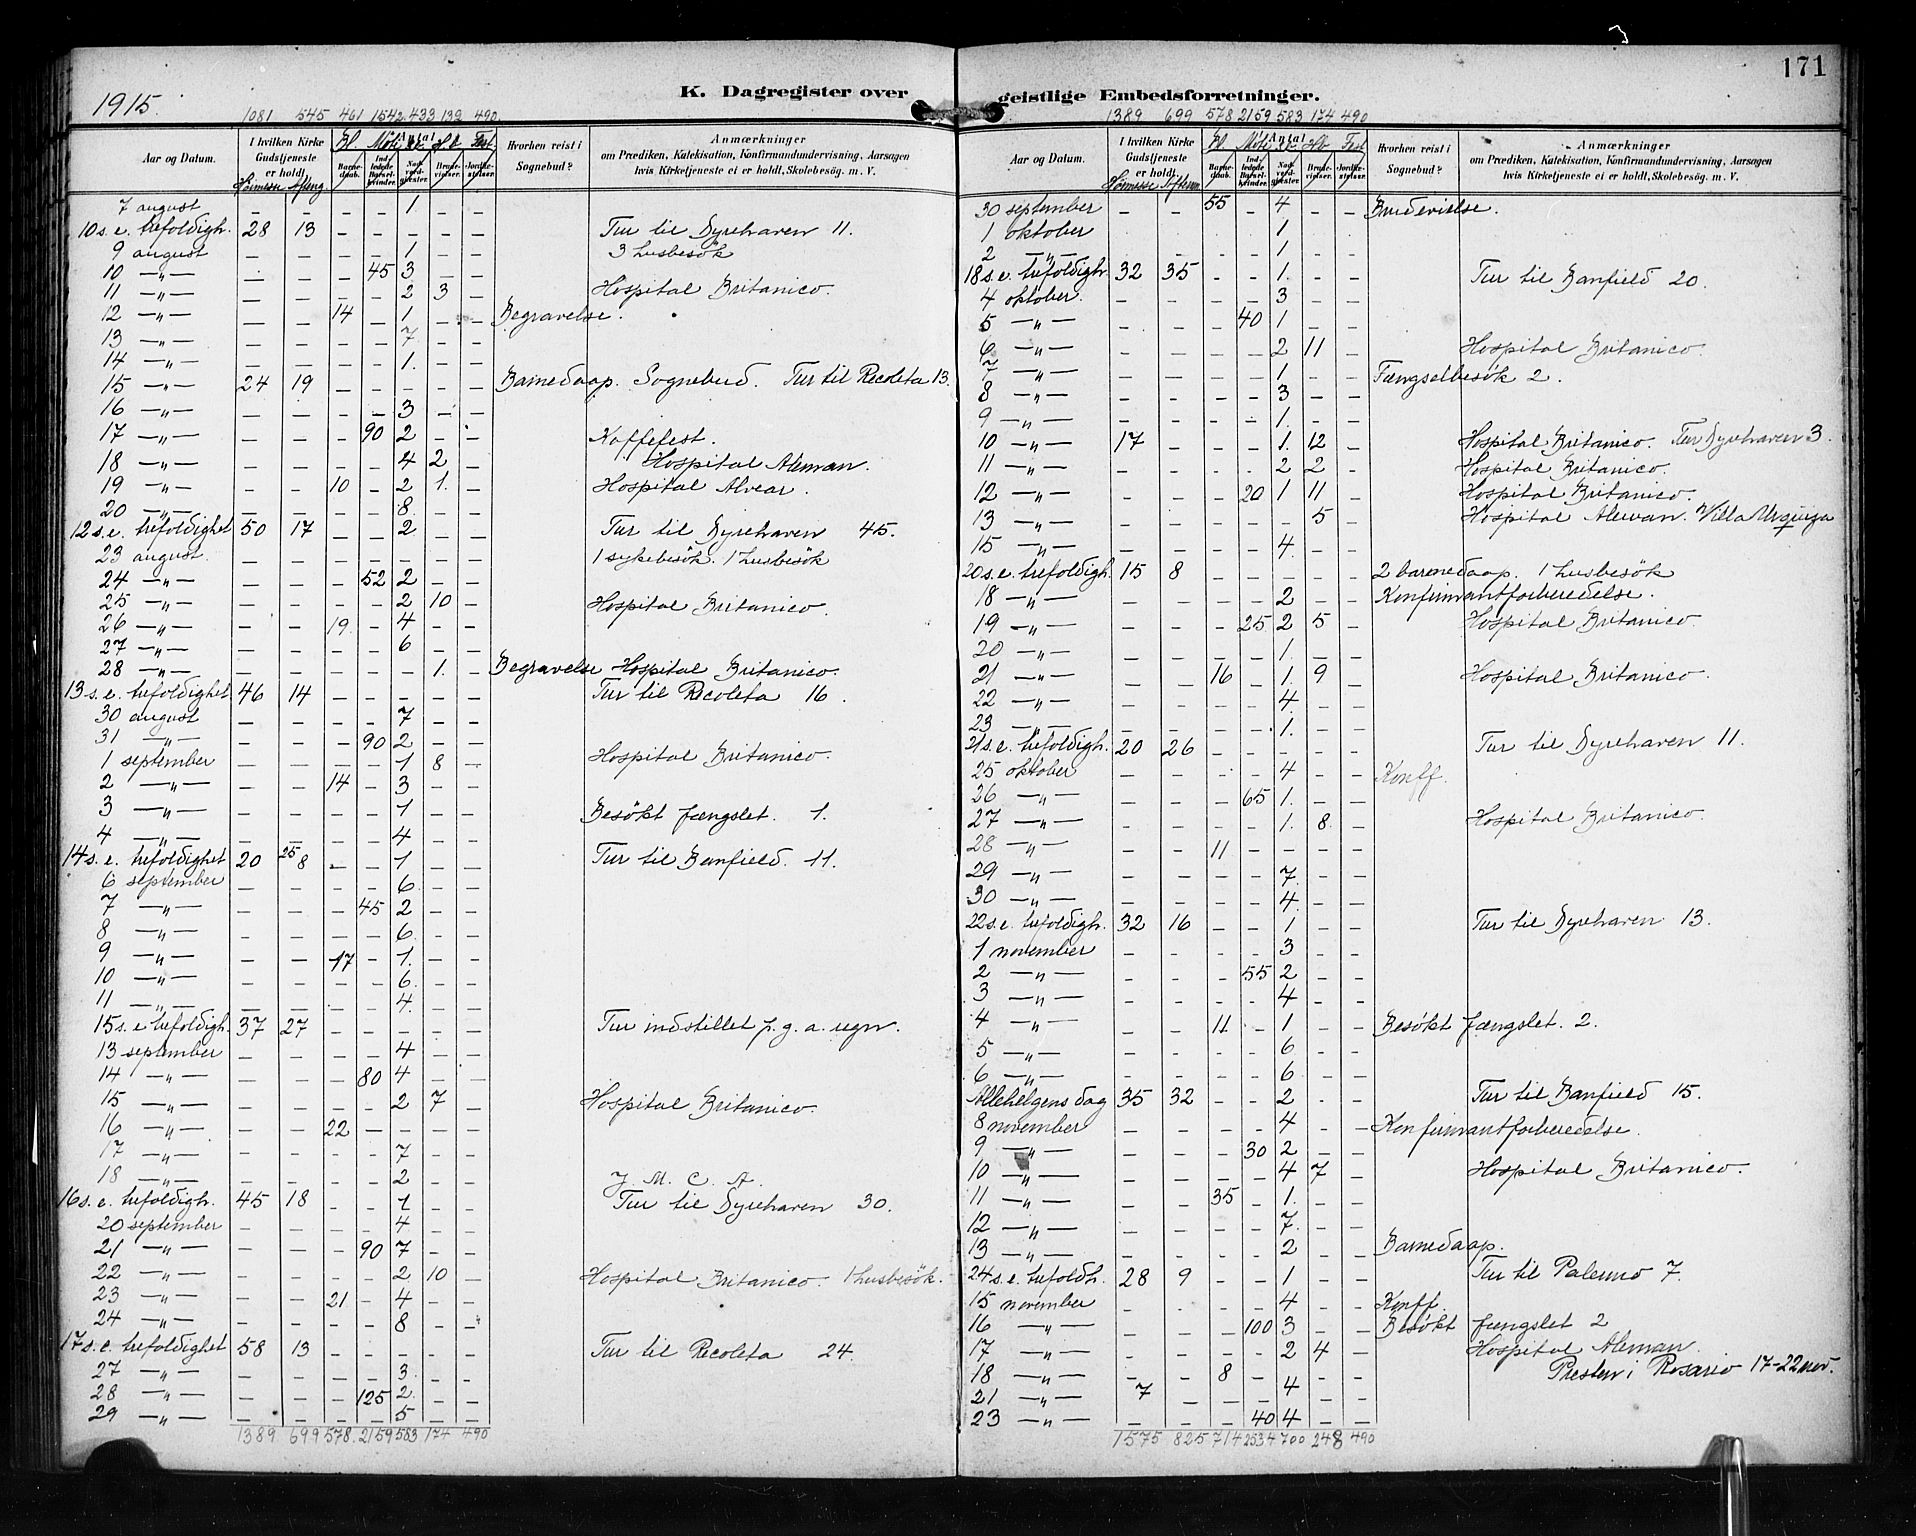 171
1915.
K. Dagregister over geistlige Embedsforretninger.
1081 545 461 1542 433 132 490
Aar og Datum. | I hvilken Kirke Gudstjeneste er holdt. Höimesse Afteng | Antal | Barnedaab. | Indledede Barselkvinder. | Nadverdgjester | Brudevielser. | Jordfæstelser | Hvorhen reist i Sognebud? | Anmærkninger om Prædiken, Katekisation, Konfirmandundervisning, Aarsagen hvis Kirketjeneste ei er holdt, Skolebesøg m. V.
7 august – – – – 1 – –
10 s.e. trefoldigh. 28 13 – – – – – Tur til Dyrehaven 11.
9 august – – – – 1 – – 3 husbesök
10 –"– – – – 45 3 – –
11 –"– – – – – 2 3 – Hospital Britanico.
12 –"– – – 14 – 1 – – Begravelse.
13 –"– – – – – 7 – –
14 –"– – – – – 1. – –
15 –"– 24 19 – – – – – Barnedaap. Sognebud. Tur til Recoleta 13.
16 –"– – – – – 3 – –
17 –"– – – – 90 2 – – Kaffefest.
18 –"– – – – – 4 2 – Hospital Aleman.
19 –"– – – 10 – 2 1. – Hospital Alvear.
20 –"– – – – – 8 – –
12 s.e. trefoldighet 50 17 – – 2 – – Tur til Dyrehaven 45.
23 august – – – – – – – 1 sykebesök. 1 husbesök
24 –"– – – – 52 2 – –
25 –"– – – – – 2 10 – Hospital Britanico.
26 –"– – – 19. – 4 – –
27 –"– – – – – 6 – –
28 –"– – – – – – 1. – Begravelse Hospital Britanico.
13 s.e. trefoldighet 46 14 – – – – – Tur til Recoleta 16.
30 august – – – – 7 – –
31 –"– – – – 90 2 – –
1 september – – – – 1 8 – Hospital Britanico.
2 –"– – – 14 – 3 – –
3 –"– – – – – 1 – – Besökt fængslet. 1.
4 –"– – – – – 4 – –
14 s.e. trefoldighet 20 25 8 – – 1 – – Tur til Banfield. 11.
6 september – – – – 6 – –
7 –"– – – – 45 2 – –
8 –"– – – – – 6. – –
9 –"– – – 17 – 1. – –
10 –"– – – – – 6. – –
11 –"– – – – – 4. – –
15 s.e. trefoldigh. 37 27 – – – – – Tur indstillet p.g.a. regn.
13 september – – – – 4 – –
14 –"– – – – 80 4 – –
15 –"– – – – – 2 7 – Hospital Britanico.
16 –"– – – 22 – – – –
17 –"– – – – – 7 – –
18 –"– – – – – 2 – – Y. M. C. A.
16 s.e. trefoldigh. 45 18 – – 1 – – Tur til Dyrehaven 30.
20 september – – – – 4 – –
21 –"– – – – 90 7 – –
22 –"– – – – – 2 10 – Hospital Britanico. 1 husbesök.
23 –"– – – 21 – 4 – –
24 –"– – – – – 8 – –
17 s.e. trefoldighet 58 13 – – – – – Tur til Recoleta 24.
27 –"– – – – – 3. – –
28 –"– – – – 125 2. – –
29 –"– – – – – 5 – –
1389 699 578. 2159 583 174 490
1389 699 578 2159 583 174 490
Aar og Datum. | I hvilken Kirke Gudstjeneste er holdt. Höimesse Aftensm | Antal | Barnedaab. | Indledede Barselkvinder. | Nadverdgjester | Brudevielser. | Jordfæstelser | Hvorhen reist i Sognebud? | Anmærkninger om Prædiken, Katekisation, Konfirmandundervisning, Aarsagen hvis Kirketjeneste ei er holdt, Skolebesøg m. V.
30 september – – 55 – 4 – – Brudevielse.
1 oktober – – – 1 – –
2 –"– – – – – 1 – –
18 s.e. trefoldigh. 32 35 – – 1. – – Tur til Banfield 20.
4 oktober. – – – – 3 – –
5 –"– – – – 40 1 – –
6 –"– – – – – 2 11 – Hospital Britanico.
7 –"– – – – – 1 – – Fængselbesök 2.
8 –"– – – – – 3 – –
9 –"– – – – – 1. – –
10 –"– 17 – – – 1. 12 – Hospital Britanico. Tur Dyrehaven 3.
11 –"– – – – – 2 2 – Hospital Britanico.
12 –"– – – – 20 1 11 – Hospital Britanico.
13 –"– – – – – 5 – Hospital Aleman. Villa Urquiza
15 –"– – – – – 4. – –
20 s.e. trefoldigh. 15 8 – – – – – 2 barnedaap. 1 husbesök
18 –"– – – – – 2 – – Konfirmantforberedelse.
19 –"– – – – 25 2 5 – Hospital Britanico.
20 –"– – – – – 1. – –
21 –"– – – 16 – 1. 9 – Hospital Britanico.
22 –"– – – – – 4. – –
23 –"– – – – – 1. – –
21 s.e. trefoldigh. 20 26 – – – – – Tur til Dyrehaven 11.
25 oktober – – – – 4 – – Konff.
26 –"– – – – 65 1. – –
27 –"– – – – – 1. 8. – Hospital Britanico.
28 –"– – – 11 – – – –
29 –"– – – – – 7. – –
30 –"– – – – – 4. – –
22 s.e. trefoldigh. 32 16 – – 1 – – Tur til Dyrehaven 13.
1 november – – – – 3 – –
2 –"– – – – 55 2 – –
3 –"– – – – – 4 – –
4 –"– – – 11 – 1 – – Besökt fængslet. 2.
5 –"– – – – – 6 – –
6 –"– – – – – 6 – –
Allehelgens dag 35 32 – – 2 – – Tur til Banfield 15.
8 november – – – – 4 – – Konfirmantforberedelse.
9 –"– – – – 30 2 – –
10 –"– – – – – 4 7 – Hospital Britanico.
11 –"– – – 35 – 1. – –
12 –"– – – – – 7. – –
13 –"– – – – – 2 – – Barnedaap.
24 s.e. trefoldh. 28 9 – – 1 – – Tur til Palermo 7.
15 november – – – – 4 – – Konff.
16 –"– – – – 100 3 – – Besökt fængslet 2
17 –"– – – – – 2 4 – Hospital Aleman.
18 –"– – – 8 – – – – Presten i Rosario 17-22 nov.
21 –"– 7 – – – 4 – –
23 –"– – – – 40 4 – –
1575 825 714 2534 700 248 490